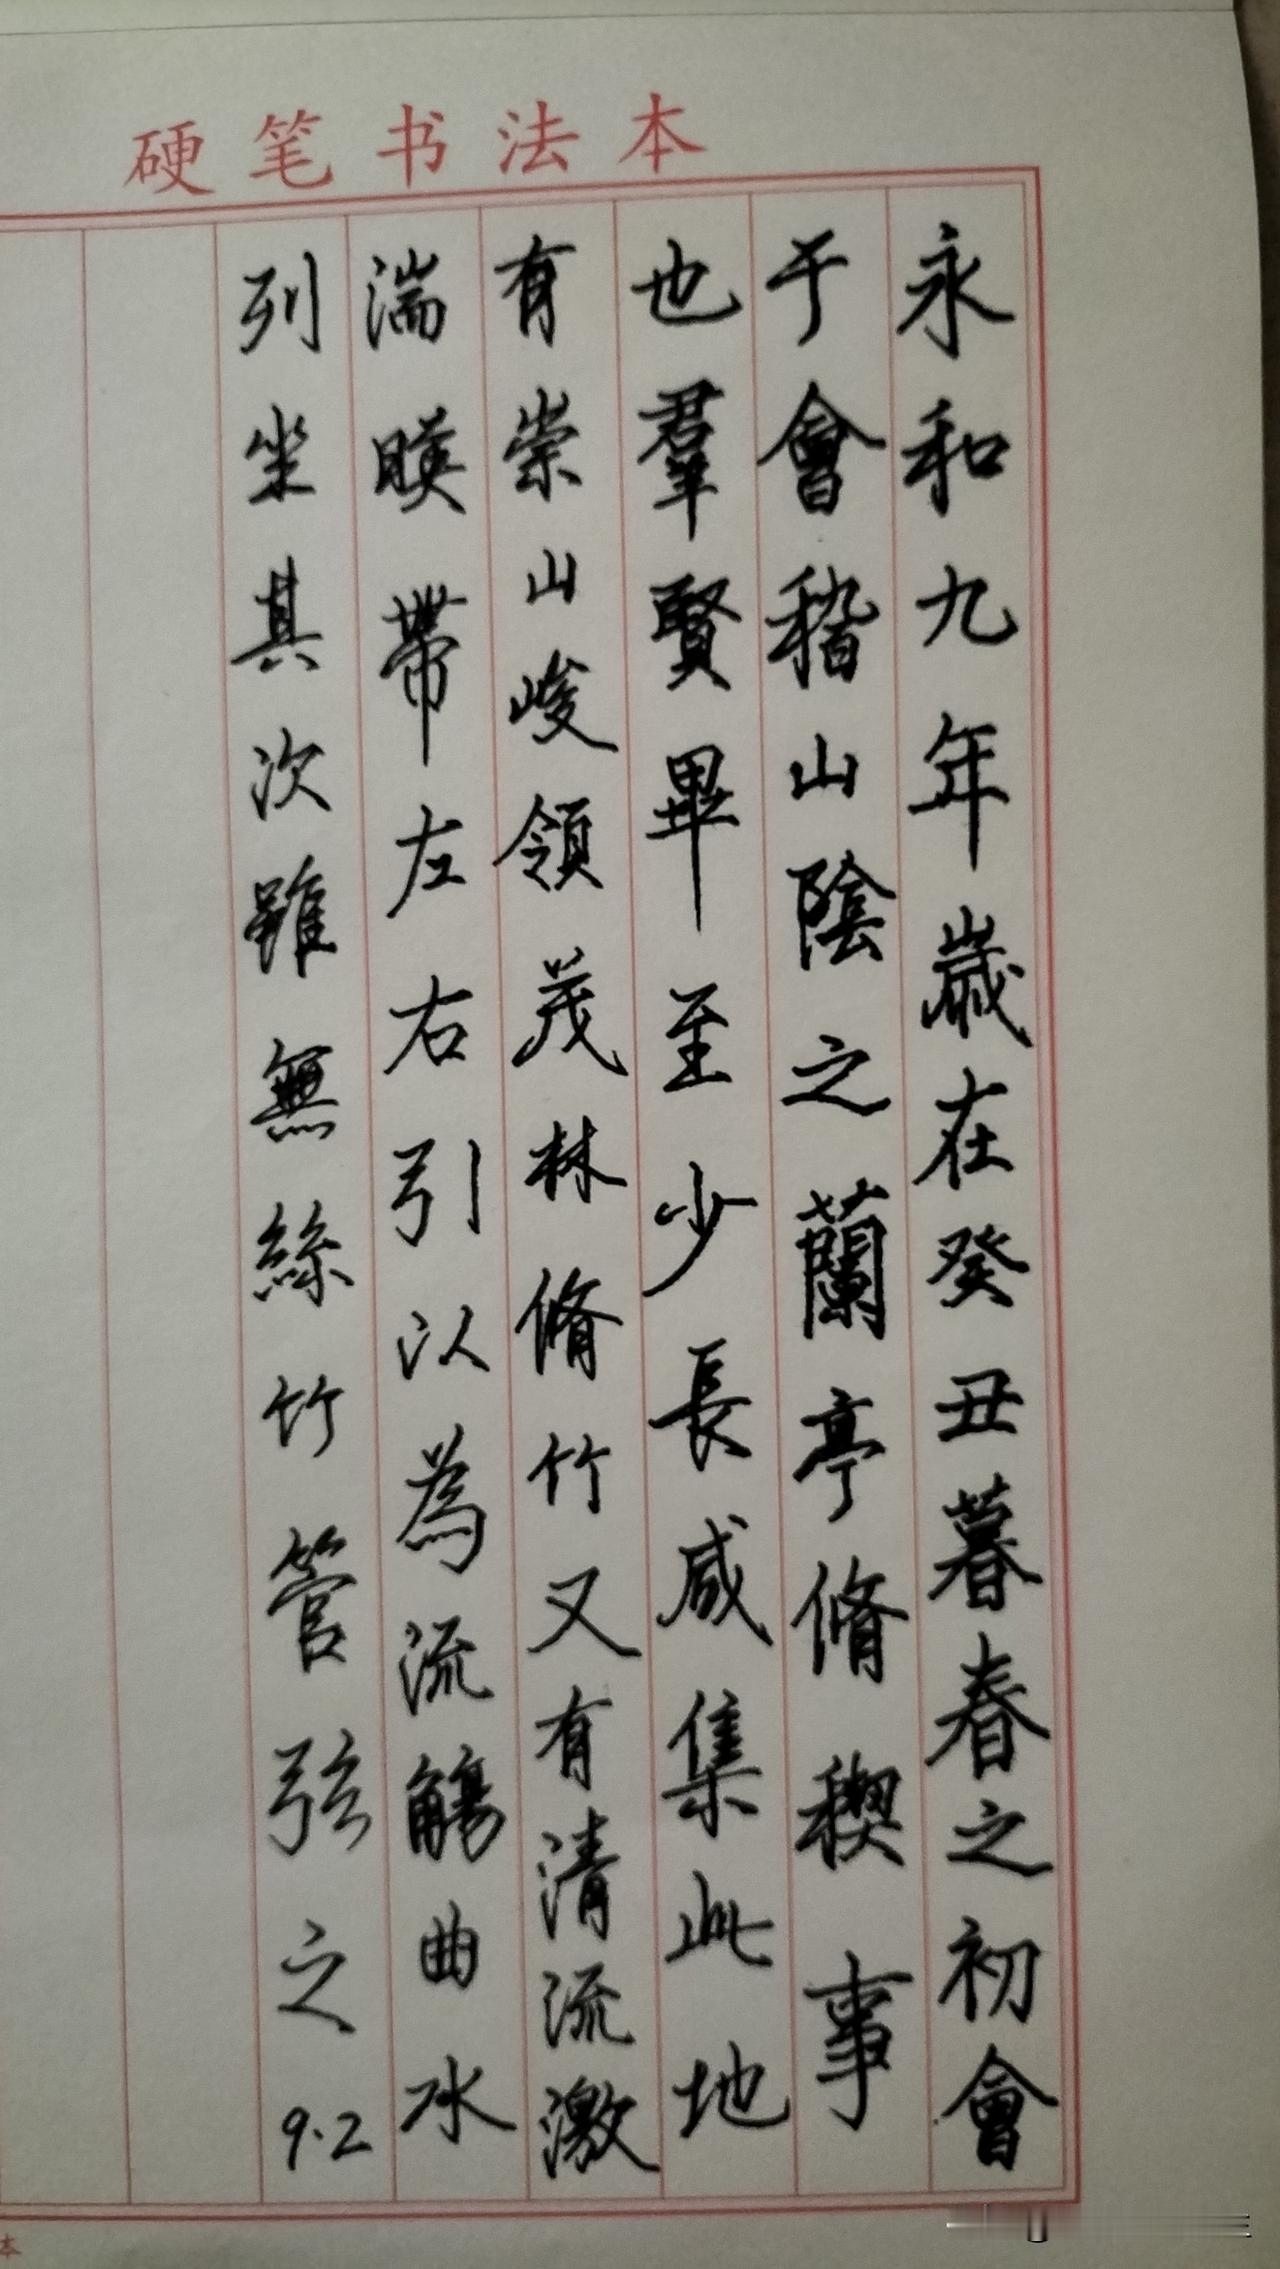 硬笔书法本
永和九年歲在癸丑暮春之初會
于會稽山陰之蘭亭脩稧事
也羣賢畢至少長咸集此地
有崇山峻領茂林脩竹又有清流激
湍暎帶左右引以為流觴曲水
列坐其次雖無絲竹管弦之
9.2
本